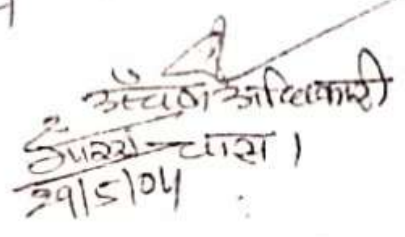 अंचल अधिकारी
चास ।
29/5/04